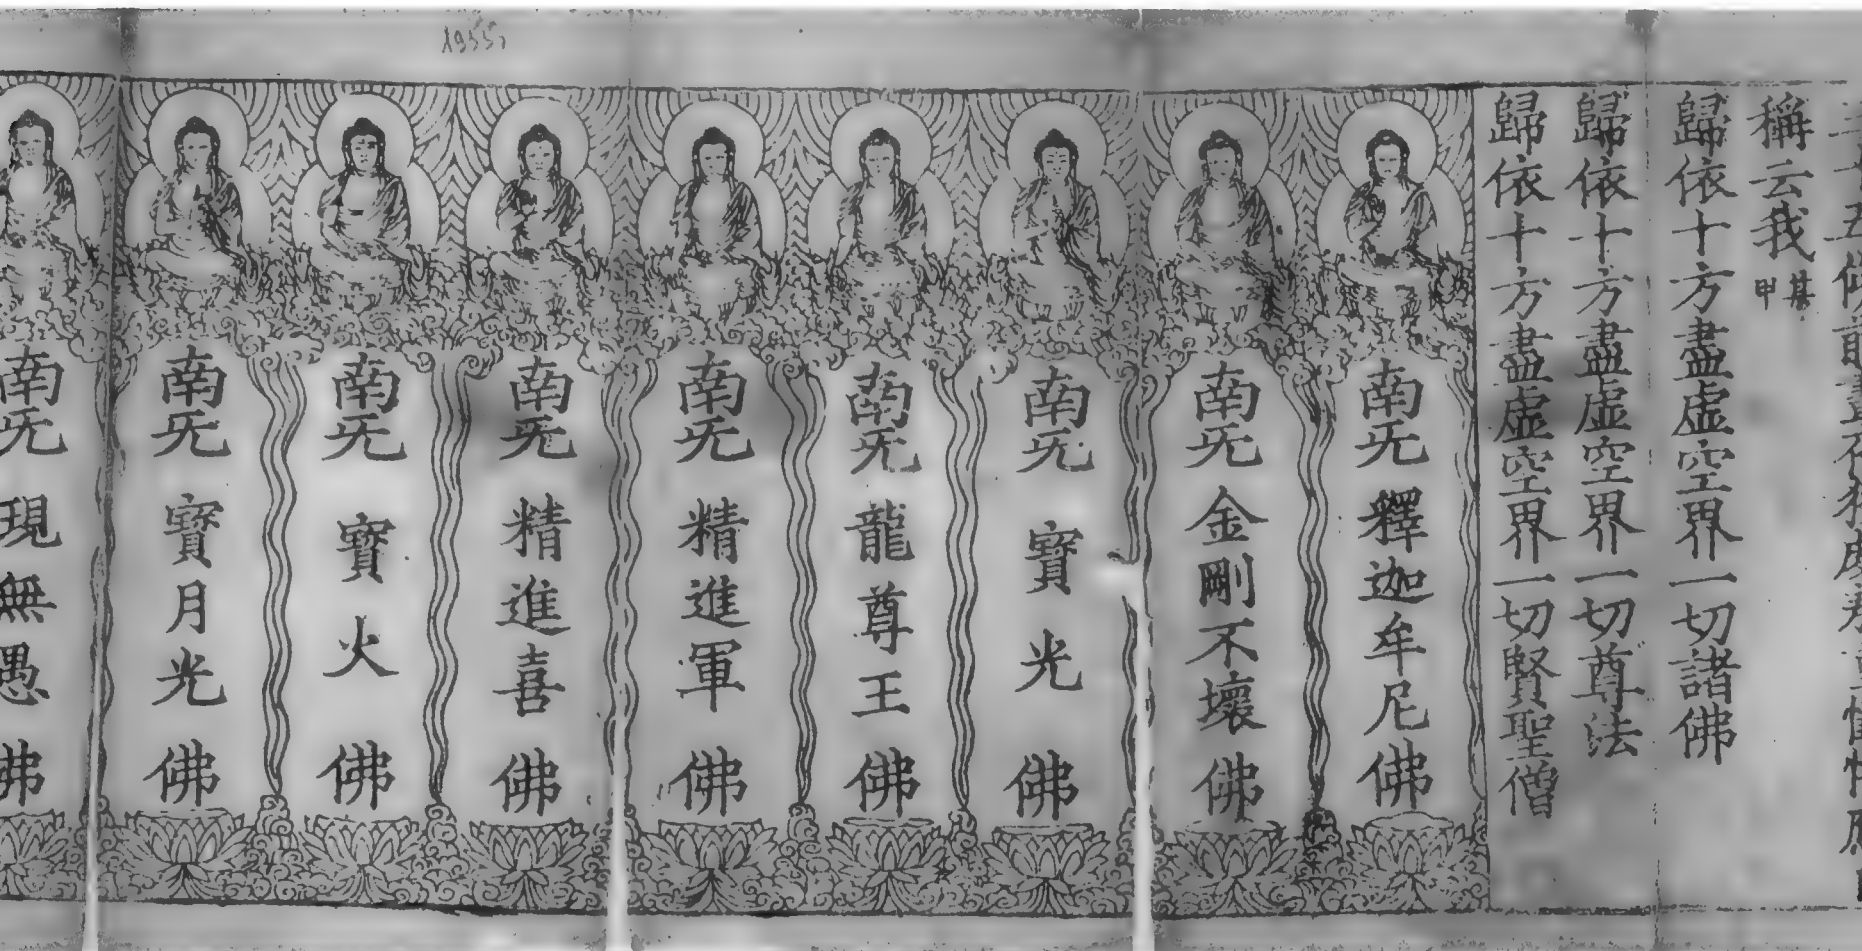 稱云我某甲
歸依十方盡虛空界一切諸佛
歸依十方盡虛空界一切尊法
歸依十方盡虛空界一切賢聖僧
南无釋迦牟尼佛
南无金剛不壞佛
南无寶光佛
南无龍尊王佛
南无精進軍佛
南无精進喜佛
南无寶火佛
南无寶月光佛
南无現無愚佛